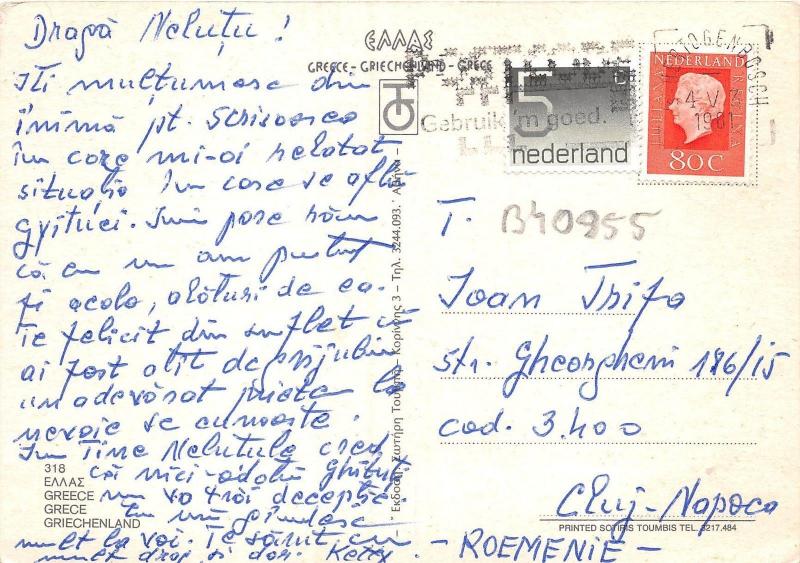 Dragă Neluțu!
Îți mulțumesc din
inimă pt. scrisoarea
în care mi-ai relatat
situația în care se află
Imi pare rău
că eu nu am putut
fi acolo, alături de ea.
Te felicit din suflet că
ai fost atît de
un adevărat prieten la
nevoie se cunoaște.
In Tine Neluțule cred
că nici-odată
nu va trăi decepție.
Eu mă gîndesc
mult la voi. Te sărut cu
mult drag și dor. Ketty
318
ΕΛΛΑΣ
GREECE
GRECE
GRIECHENLAND
ΕΛΛΑΣ
GREECE - GRIECHENLAND - GRECE
Εκδοση Σωτήρη Τουμπή - Κορίννης 3 - Τηλ. 3244.093. Αθήνα
Gebruik 'm goed.
5
nederland
NEDERLAND
JULIANA REGINA
80C
4 V
1981
T. B40955
Ioan Trifa
str. Gheorgheni 186/15
cod. 3.400
Cluj-Napoca
PRINTED SOTIRIS TOUMBIS TEL. 3217.484
- ROEMENIE -